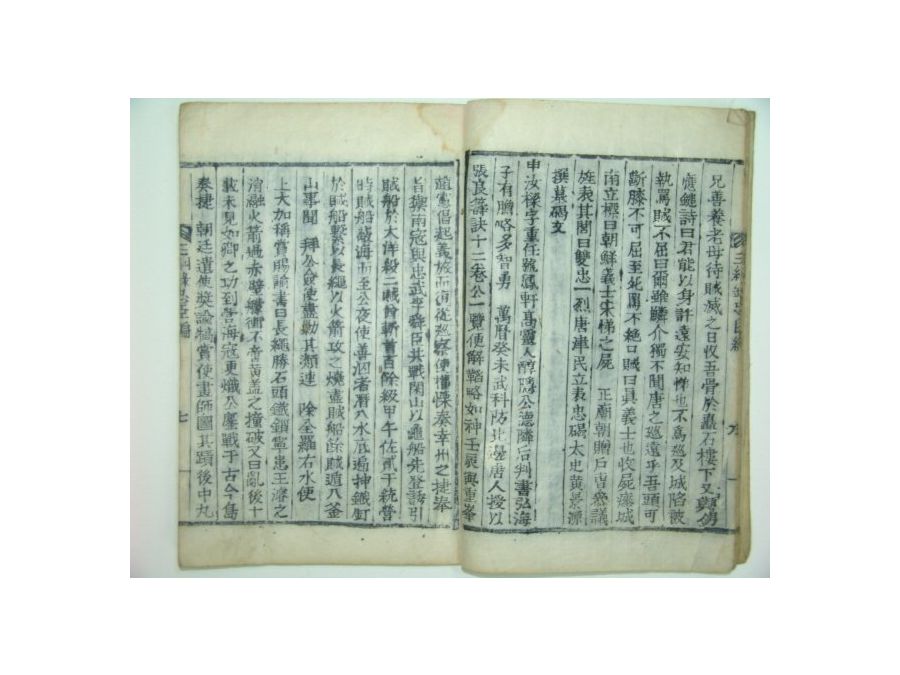 兄善養老母待賊滅之日收吾骨於矗石樓下又
應鏈詩曰君能以身許遠安知惟也不爲巡及城陷被
執罵賊不屈曰爾雖鱗介獨不聞唐之巡遠乎吾頭可
斷膝不可屈至死罵不絶口賊曰眞義士也收屍藁城
南立標曰朝鮮義士宋悌之屍 正廟朝贈戶曹參議
旌表其閭曰雙忠一烈唐津民立表忠碣太史黃景源
撰墓碣文
申汝樑字重任號鳳軒高靈人醇隱公德隣后判書弘海
子有膽略多智勇 萬曆癸未武科防北邊唐人授以
張良籌訣十二卷公一覽便解韜略如神壬辰與重峯
趙憲倡起義旅而從巡察使權慄奏幸州之捷奉
旨擯南寇與忠武李舜臣共戰閑山以龜船先登誘引
賊船於大洋殺二賊酋斬首百餘級甲午佐貳于統營
時賊船蔽海而至公夜使善泅者潛入水底遍抻鐵釘
於賊船繫以長繩以火箭攻之燒盡賊船餘賊遁入釜
山事聞 拜公僉使盡勦其類連 除全羅右水使
上大加稱賞賜諭書曰長繩勝石頭鐵鎖寧患王濬之
濟融火箭過赤壁艨衝不啻黃盖之撞破又曰亂後十
載未見如卿之功到今海寇更熾公鏖戰于古今島
奏捷 朝廷遣使奬諭犒賞使畫師圖其蹟後中丸
三綱錄忠臣編
七